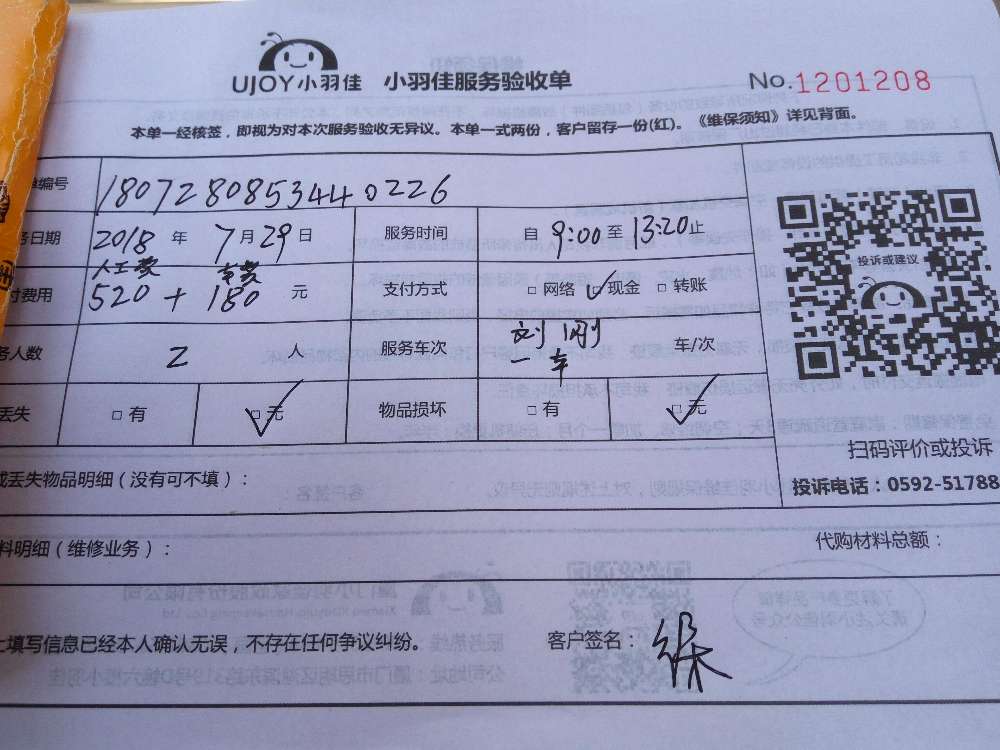 UJOY小羽佳 小羽佳服务验收单 No.1201208
本单一经核签，即视为对本次服务验收无异议。本单一式两份，客户留存一份(红)。《维保须知》详见背面。
单编号 180728085344 0226
务日期 2018 年 7 月 29 日 服务时间 自 9:00 至 13:20 止
人工费 车费
付费用 520 + 180 元 支付方式 □ 网络 ✓现金 □ 转账
务人数 2 人 服务车次 一车 车/次
丢失 □ 有 □ 无 物品损坏 □ 有 □ 无
投诉或建议
扫码评价或投诉
投诉电话：0592-51788
或丢失物品明细（没有可不填）：
料明细（维修业务）： 代购材料总额：
上填写信息已经本人确认无误，不存在任何争议纠纷。 客户签名：